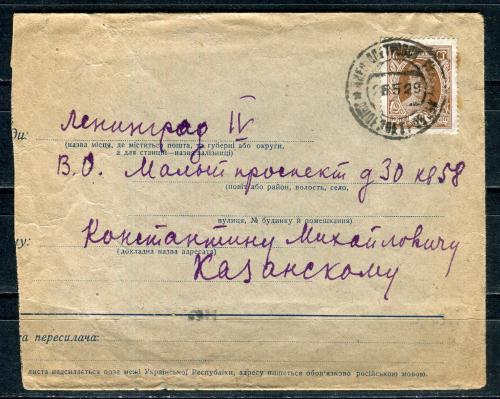 5 29
ди:
Ленинград IV
(назва місця, де міститься пошта, та губерні або округи,
а для станцій—назва залізниці)
В.О. Малый проспект д 30 кв 58
(повіт або район, волость, село,
вулиця, № будинку й помешкання)
му:
Константину Михайловичу
(докладна назва адресата)
Казанскому
са пересилача:
листа надсилається поза межі Української Республіки, адресу пишеться обов'язково російською мовою.